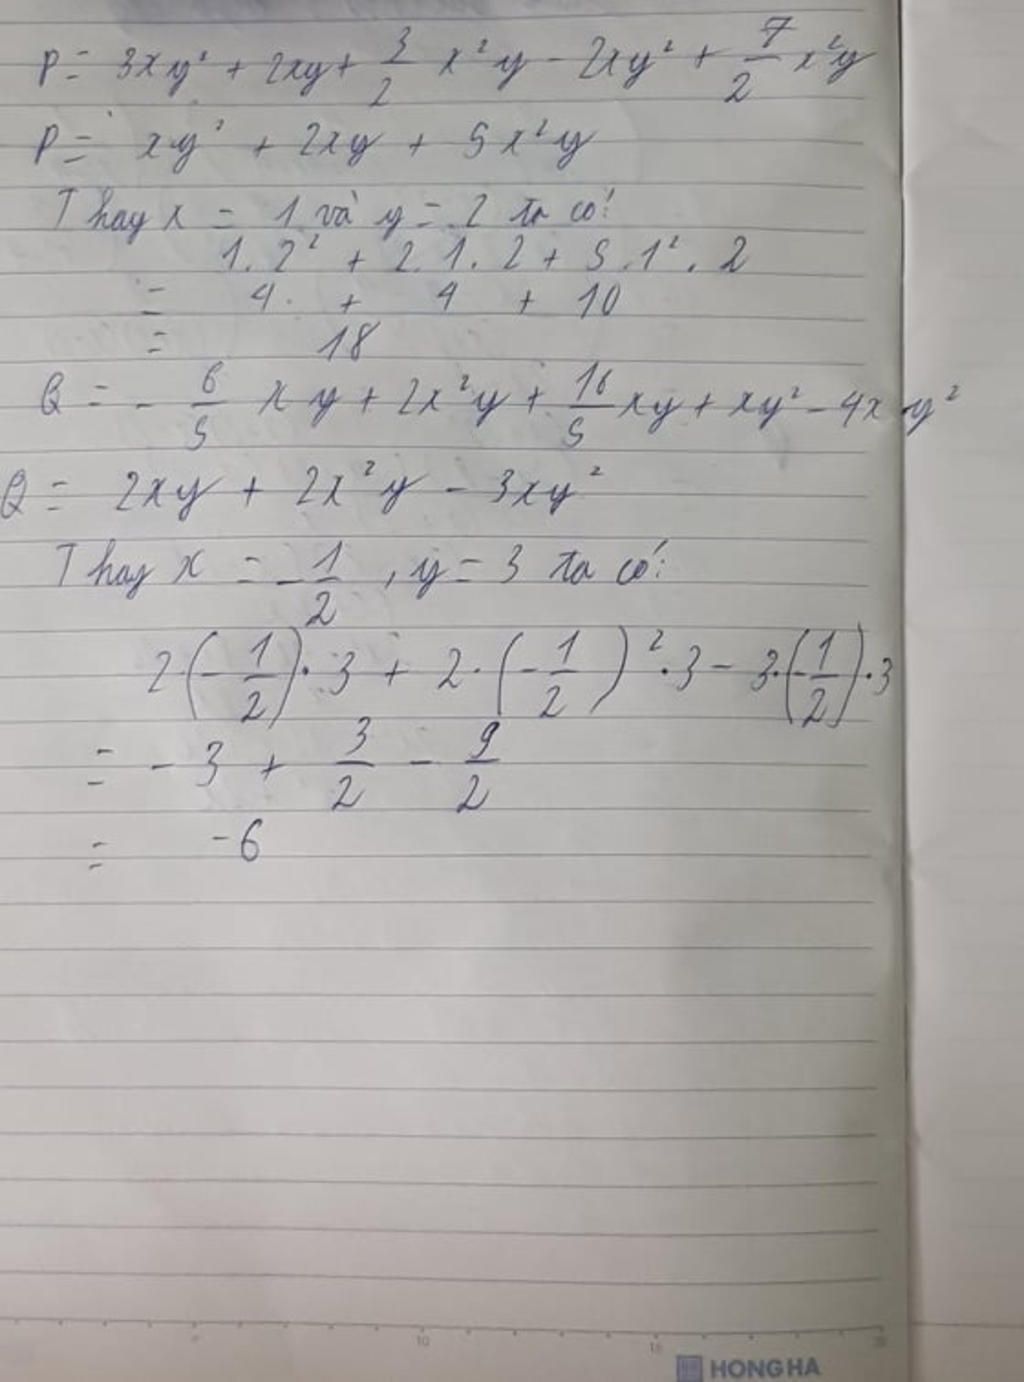 P = 3xy² + 2xy + 3/2 x²y - 2xy² + 7/2 x²y
P = xy² + 2xy + 5x²y
Thay x = 1 và y = 2 ta có:
1.2² + 2.1.2 + 5.1².2
= 4 + 4 + 10
= 18
Q = - 6/5 xy + 2x²y + 16/5 xy + xy² - 4xy²
Q = 2xy + 2x²y - 3xy²
Thay x = -1/2, y = 3 ta có:
2.(-1/2).3 + 2.(-1/2)².3 - 3.(-1/2).3
= -3 + 3/2 - 9/2
= -6
10 15 20
HONG HA